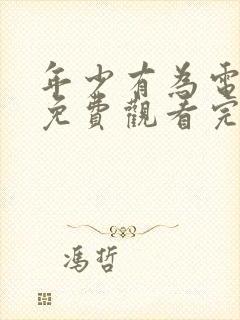 年少有為電
免費觀看完
馮哲